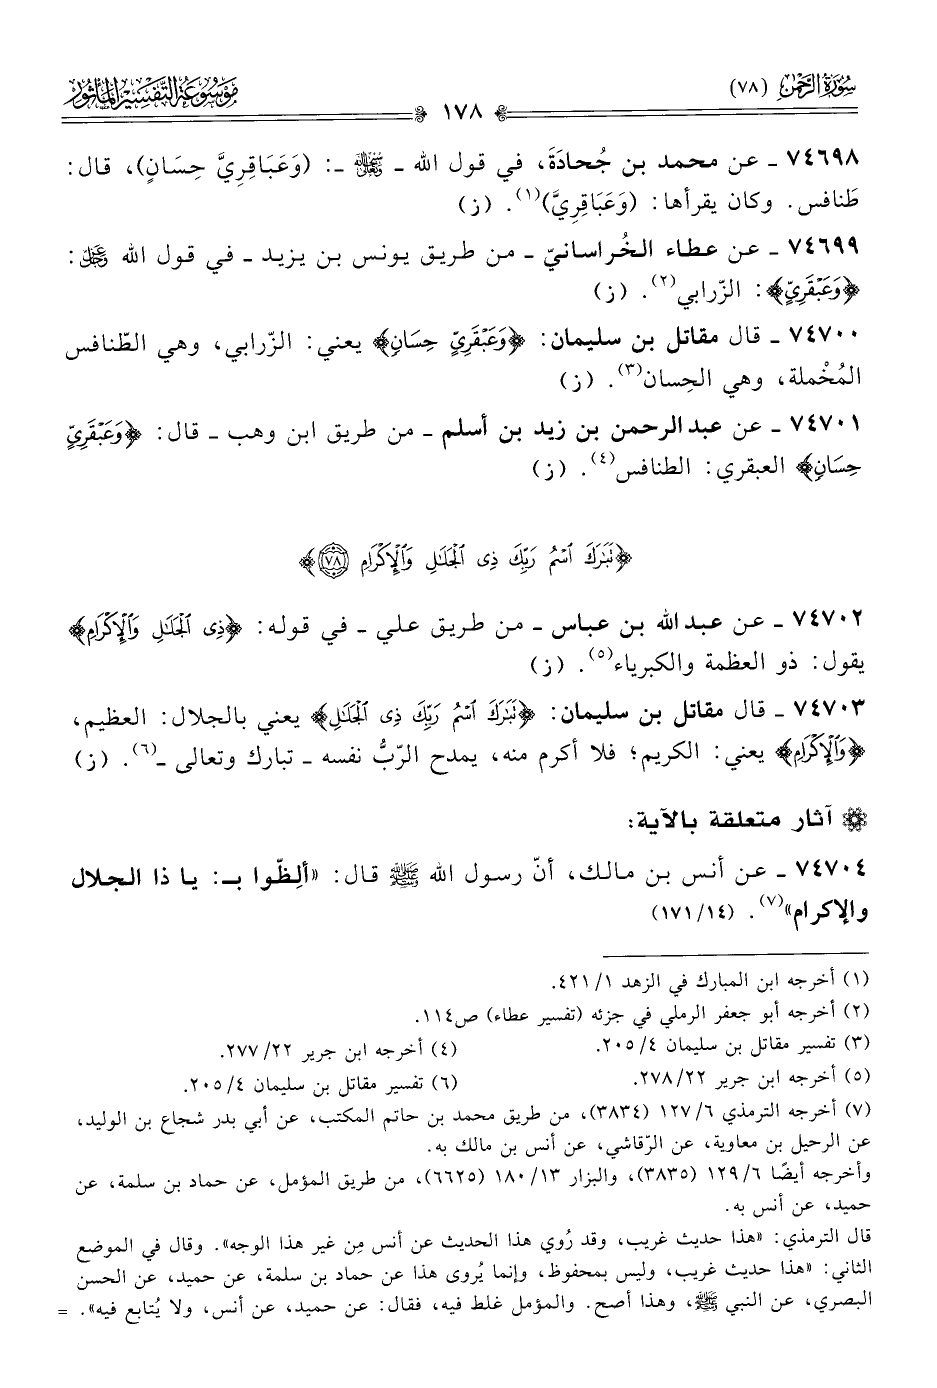 سُورَةُ الرَّحْمٰن (٧٨)
١٧٨
مَوْسُوعَة التَّفْسِيرِ المَأْثُور
٧٤٦٩٨ ـ عن محمد بن جُحادَةَ، في قول الله ـ سبحانه ـ: (وَعَبَاقِرِيَّ حِسَانٍ)، قال:
طَنافس. وكان يقرأها: (وَعَبَاقِرِيَّ)(١). (ز)
٧٤٦٩٩ ـ عن عطاء الخُراسانيّ ـ من طريق يونس بن يزيد ـ في قول الله عز وجل:
﴿وَعَبْقَرِيٍّ﴾: الزّرابي(٢). (ز)
٧٤٧٠٠ ـ قال مقاتل بن سليمان: ﴿وَعَبْقَرِيٍّ حِسَانٍ﴾ يعني: الزّرابي، وهي الطّنافس
المُخْملة، وهي الحِسان(٣). (ز)
٧٤٧٠١ ـ عن عبد الرحمن بن زيد بن أسلم ـ من طريق ابن وهب ـ قال: ﴿وَعَبْقَرِيٍّ
حِسَانٍ﴾ العبقري: الطنافس(٤). (ز)
﴿تَبَٰرَكَ ٱسْمُ رَبِّكَ ذِى ٱلْجَلَٰلِ وَٱلْإِكْرَامِ ٧٨﴾
٧٤٧٠٢ ـ عن عبد الله بن عباس ـ من طريق علي ـ في قوله: ﴿ذِى ٱلْجَلَٰلِ وَٱلْإِكْرَامِ﴾
يقول: ذو العظمة والكبرياء(٥). (ز)
٧٤٧٠٣ ـ قال مقاتل بن سليمان: ﴿تَبَٰرَكَ ٱسْمُ رَبِّكَ ذِى ٱلْجَلَٰلِ﴾ يعني بالجلال: العظيم،
﴿وَٱلْإِكْرَامِ﴾ يعني: الكريم؛ فلا أكرم منه، يمدح الرّبُّ نفسه ـ تبارك وتعالى ـ(٦). (ز)
آثار متعلقة بالآية:
٧٤٧٠٤ ـ عن أنس بن مالك، أنّ رسول الله ﷺ قال: «ألِظّوا بـ: يا ذا الجلال
والإكرام»(٧). (١٤/ ١٧١)
(١) أخرجه ابن المبارك في الزهد ١/ ٤٢١.
(٢) أخرجه أبو جعفر الرملي في جزئه (تفسير عطاء) ص١١٤.
(٣) تفسير مقاتل بن سليمان ٤/ ٢٠٥. (٤) أخرجه ابن جرير ٢٢/ ٢٧٧.
(٥) أخرجه ابن جرير ٢٢/ ٢٧٨. (٦) تفسير مقاتل بن سليمان ٤/ ٢٠٥.
(٧) أخرجه الترمذي ٦/ ١٢٧ (٣٨٣٤)، من طريق محمد بن حاتم المكتب، عن أبي بدر شجاع بن الوليد،
عن الرحيل بن معاوية، عن الرّقاشي، عن أنس بن مالك به.
وأخرجه أيضًا ٦/ ١٢٩ (٣٨٣٥)، والبزار ١٣/ ١٨٠ (٦٦٢٥)، من طريق المؤمل، عن حماد بن سلمة، عن
حميد، عن أنس به.
قال الترمذي: «هذا حديث غريب، وقد رُوي هذا الحديث عن أنس مِن غير هذا الوجه». وقال في الموضع
الثاني: «هذا حديث غريب، وليس بمحفوظ، وإنما يُروى هذا عن حماد بن سلمة، عن حميد، عن الحسن
البصري، عن النبي ﷺ، وهذا أصح. والمؤمل غلط فيه، فقال: عن حميد، عن أنس، ولا يُتابع فيه». =